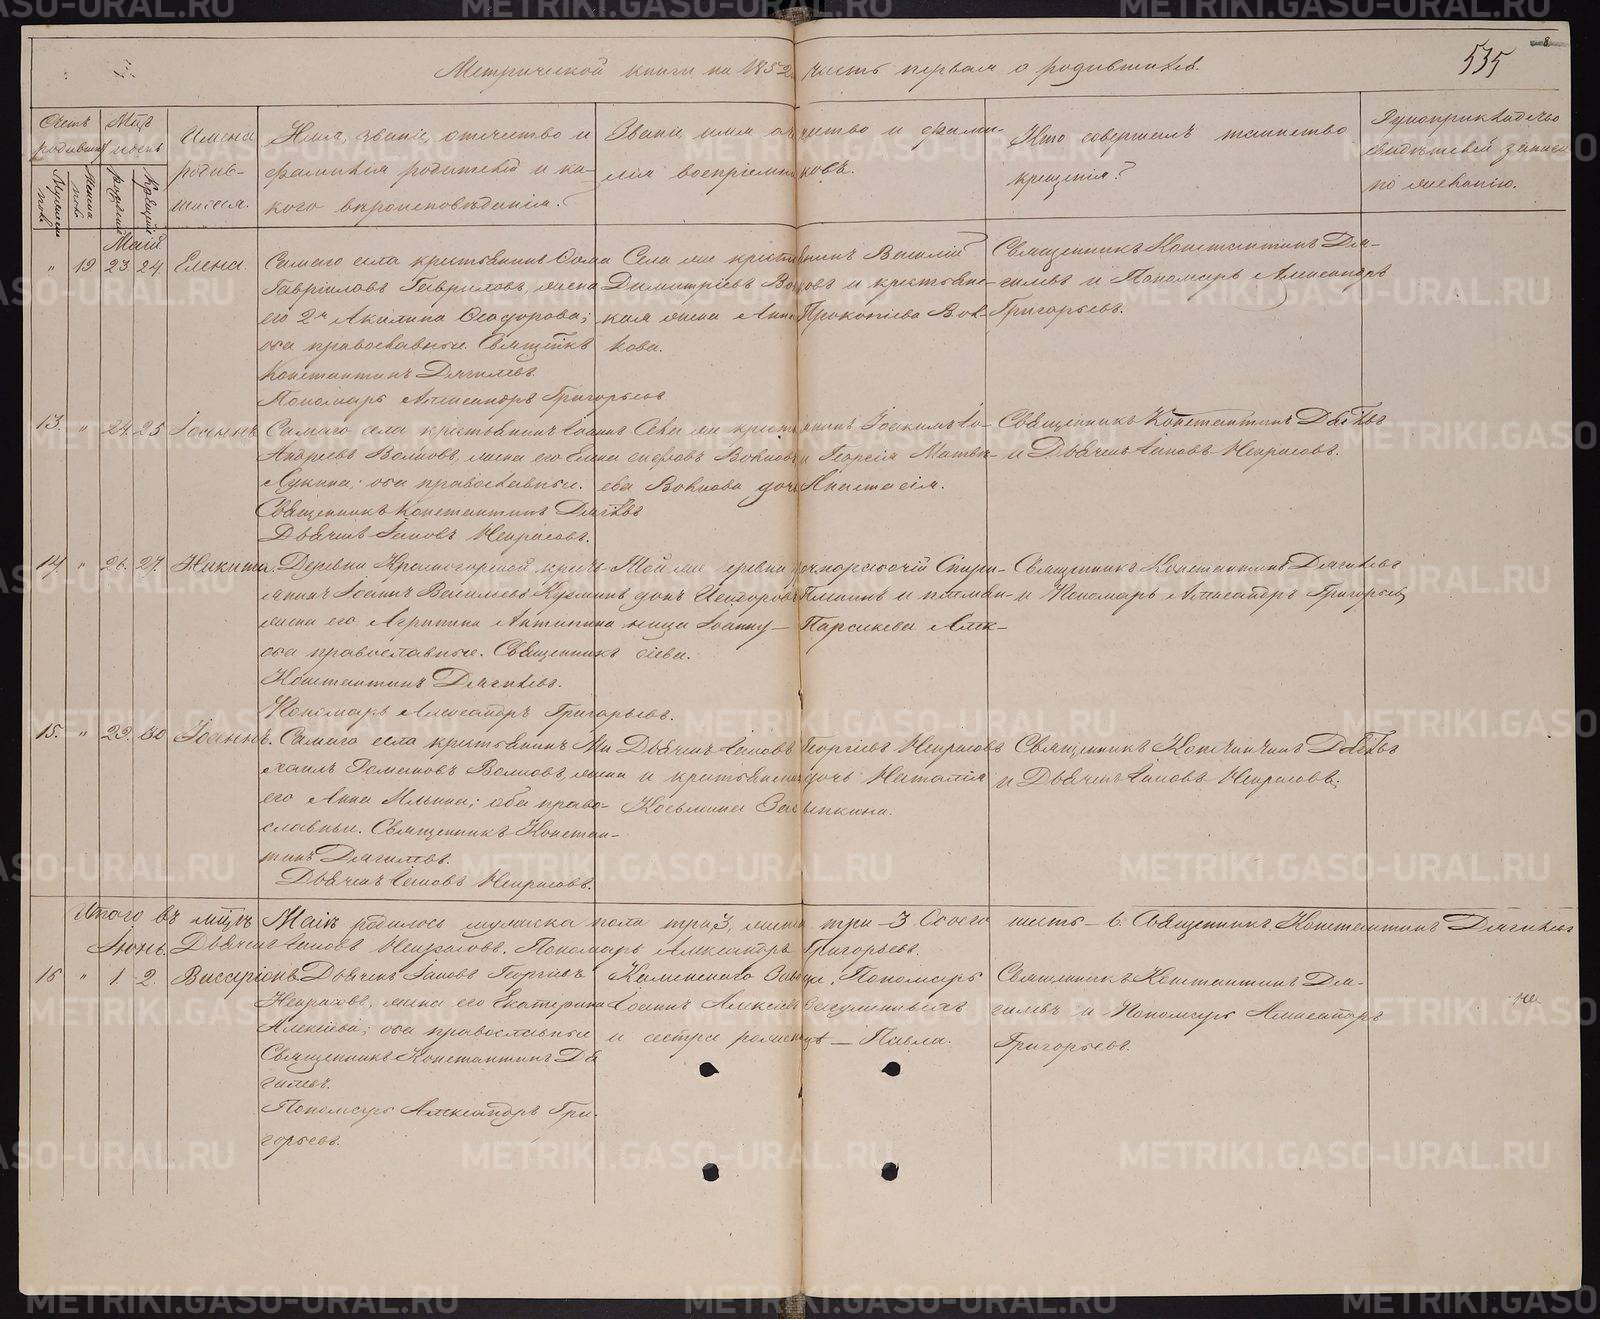 Метрической книги на 1852 часть первая о родившихся.
535
Счетъ родившихся
Мужеска пола
Женска пола
Мѣсяцъ
рожденія
Крещенія
Имена родив-
шихся.
Имя, званіе, отчество и
фамилія родителей и ка-
кого вѣроисповѣданія.
Званіе, имя отчество и фами-
лія воспріемниковъ.
Кто совершалъ таинство
крещенія?
Рукоприкладство
свидѣтелей записи
по желанію.
Май
" 19 23. 24 Елена.
Самаго села крестьянинъ Ѳома
Гавріиловъ Гавриловъ, жена
его 2я Акилина Ѳеодорова;
оба православные. Священникъ
Константинъ Дягилевъ.
Пономарь Александръ Григорьевъ
Села же крестьянинъ Василій
Димитріевъ и крестьянс-
кая жена Анна Прокопіева Вол-
кова.
Священникъ Константинъ Дя-
гилевъ и Пономарь Александръ
Григорьевъ.
13. " 24. 25 Іоаннъ
Самаго села крестьянинъ Іоаннъ
Андреевъ Волковъ, жена его Елена
Лукина; оба православные.
Священникъ Константинъ Дягилевъ
Дьячекъ Іаковъ Некрасовъ.
Села же крестьянинъ Іоакимъ Іо-
сифовъ Волковъ и Георгія Матвѣ-
ева Волкова дочь Анастасія.
Священникъ Константинъ Дягилевъ
и Дьячекъ Іаковъ Некрасовъ.
14 " 26. 27. Никита.
Деревни Красногорской крестья-
янинъ Іоаннъ Васильевъ Кузминъ
жена его Агрипина Антипина
оба православные. Священникъ
Константинъ Дягилевъ.
Пономарь Александръ Григорьевъ.
Той же деревни
Исидоровъ и племян-
ница Іоанну — Параскева Алек-
сіева.
Священникъ Константинъ Дягилевъ
и Пономарь Александръ Григорьевъ
15. " 29. 30 Іоаннъ.
Самаго села крестьянинъ Ми
хаилъ Романовъ Волковъ, жена
его Анна Ильина; оба право-
славные. Священникъ Констан-
тинъ Дягилевъ.
Дьячекъ Іаковъ Некрасовъ.
Дьячекъ Іаковъ Георгіевъ Некрасовъ
и крестьянина дочь Наталія
Косьмина
Священникъ Константинъ Дягилевъ
и Дьячекъ Іаковъ Некрасовъ.
Итого въ мѣсяцѣ Маіѣ родилось мужеска пола три 3, женска три — 3 Обоего шесть — 6. Священникъ Константинъ Дягилевъ
Іюнь. Дьячекъ Іаковъ Некрасовъ. Пономарь Александръ Григорьевъ.
16 " 1. 2. Виссаріонъ.
Дьячекъ Іаковъ Георгіевъ
Некрасовъ, жена его Екатерина
Алексіева; оба православные
Священникъ Константинъ Дя
гилевъ.
Пономарь Александръ Гри-
горьевъ.
Каменского Завода, Пономарь
Іоаннъ Алексіевъ
и сестра — Павла.
Священникъ Константинъ Дя-
гилевъ и Пономарь Александръ
Григорьевъ.
METRIKI.GASO-URAL.RU